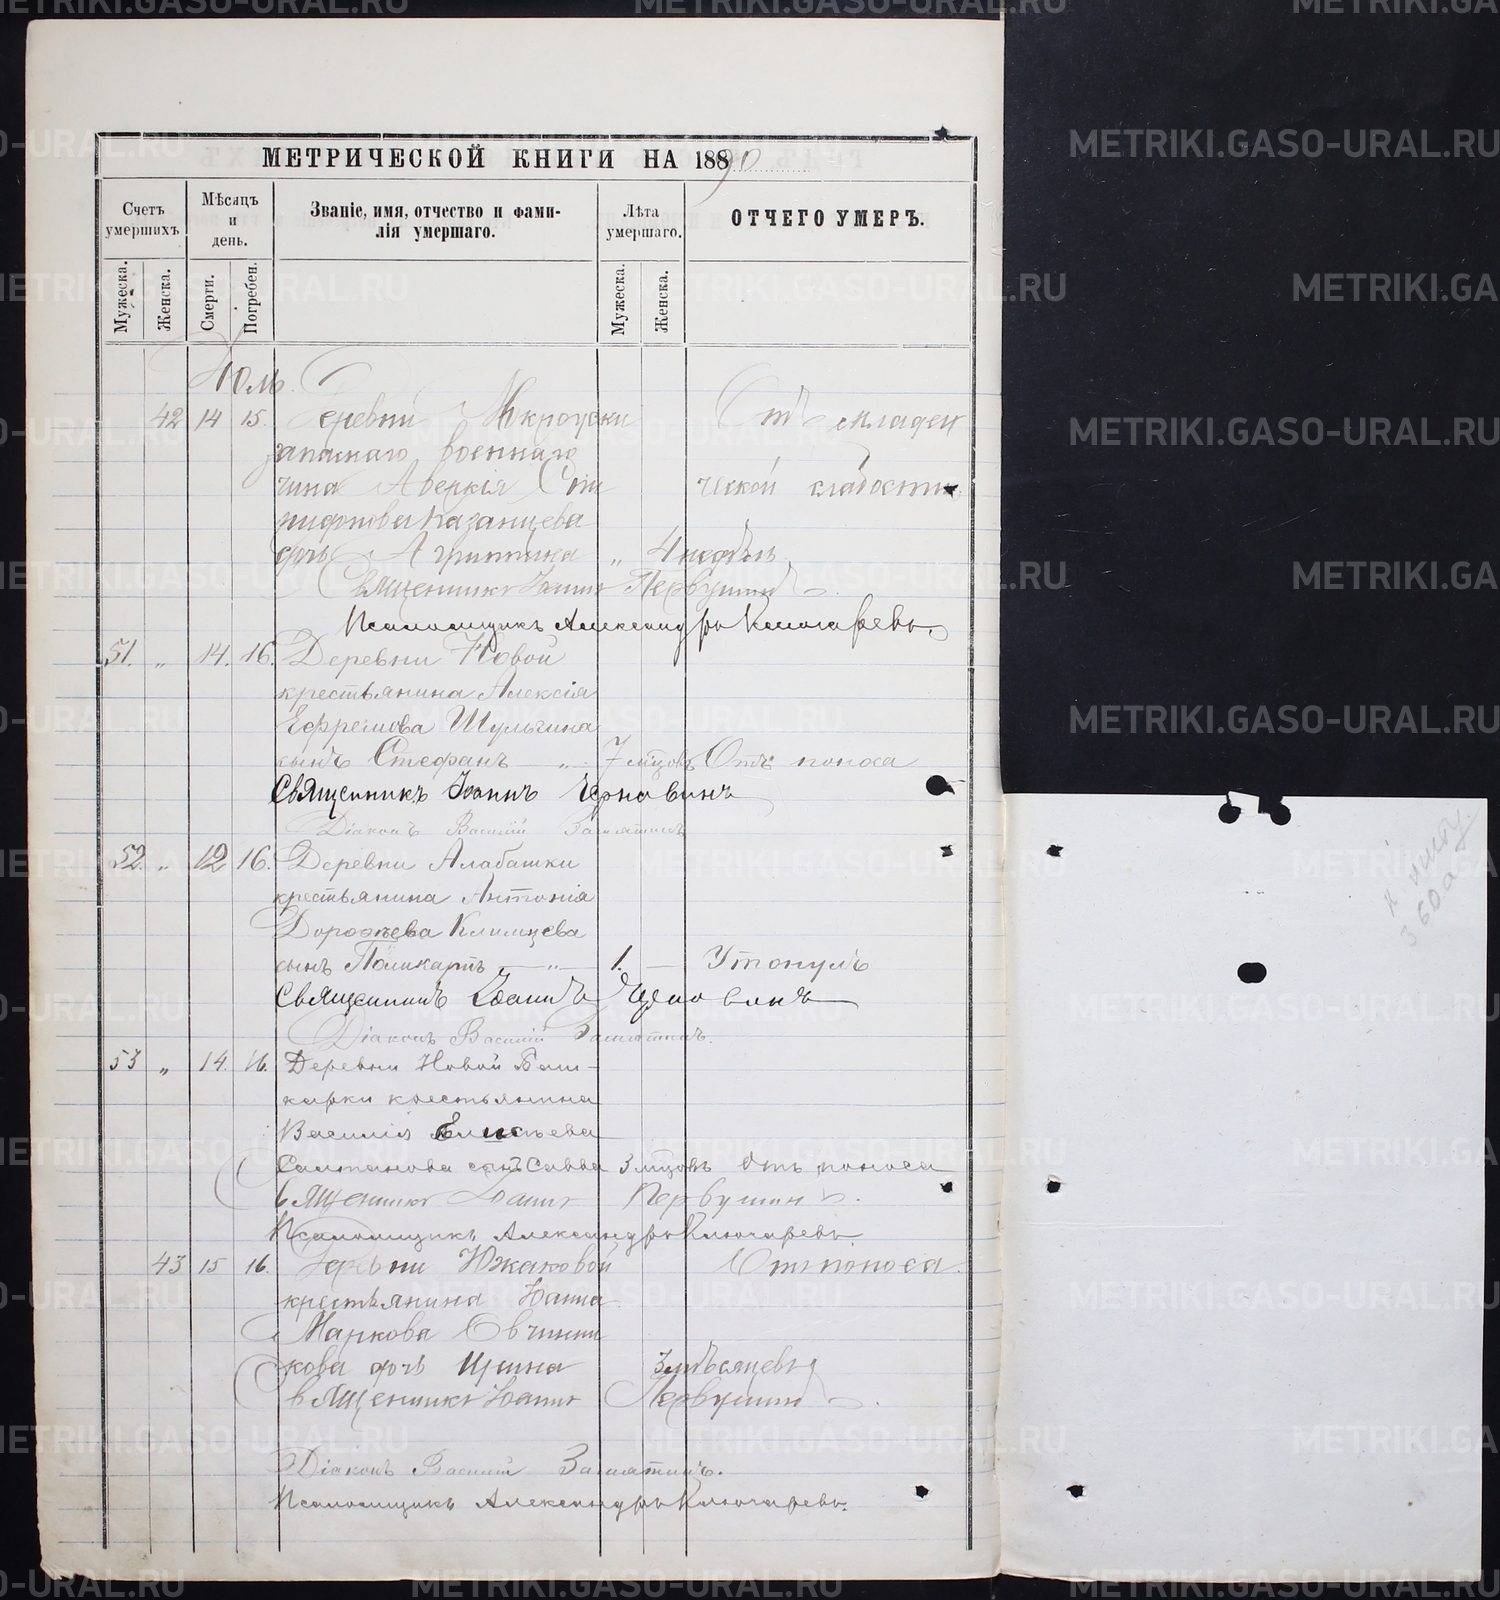 МЕТРИЧЕСКОЙ КНИГИ НА 1890
Счетъ умершихъ
Мѣсяцъ и день.
Званіе, имя, отчество и фами-
лія умершаго.
Лѣта умершаго.
ОТЧЕГО УМЕРЪ.
Мужеска.
Женска.
Смерти.
Погребен.
Мужеска.
Женска.
Юль.
42 14 15. Деревни Отъ младен
запаснаго военнаго
чина Аверкія ческой слабости
Казанцева
дочь Агриппина „ 4 недѣль
Священникъ Іоаннъ Первушинъ
Псаломщикъ Александръ Ключаревъ.
51. „ 14. 16. Деревни Новой
крестьянина Алексія
Ефремова Шульгина
сынъ Стефанъ — „ — 7 мѣцовъ Отъ поноса
Священникъ Іоаннъ Черновинъ
Діаконъ Василій Замятинъ
52. „ 12 16. Деревни Алабашки
крестьянина Антонія
Дорофѣева Климцева
сынъ Поликарпъ — „ — 1. — Утонулъ
Священникъ Іоаннъ Черновинъ
Діаконъ Василій Замятинъ.
53 „ 14. 16. Деревни Новой Баш-
карки крестьянина
Василія Елисѣева
Салтанова сынъ Савва 3 мѣцовъ Отъ поноса
Священникъ Іоаннъ Первушинъ.
Псаломщикъ Александръ Ключаревъ
43 15 16. Деревни Южаковой Отъ поноса.
крестьянина Іоанна
Маркова Овчинни
кова дочь Ирина 3 мѣсяцевъ
Священникъ Іоаннъ Первушинъ
Діаконъ Василій Замятинъ.
Псаломщикъ Александръ Ключаревъ.
360а
METRIKI.GASO-URAL.RU